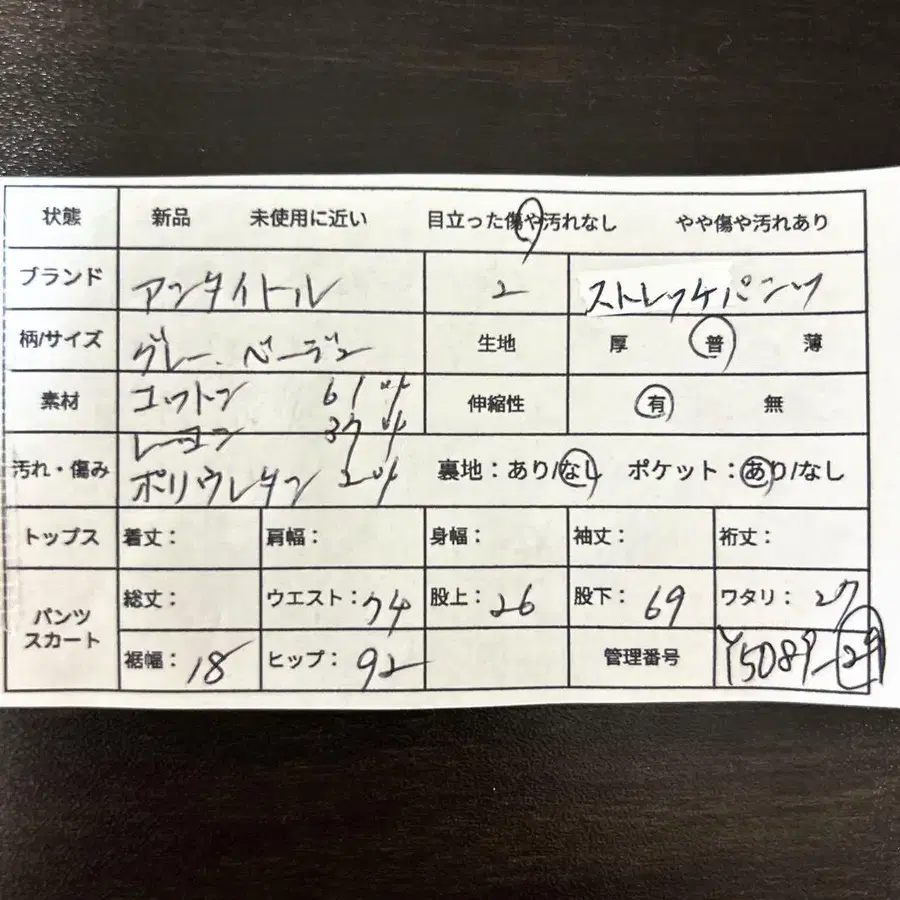 状態 新品 未使用に近い 目立った傷や汚れなし やや傷や汚れあり
ブランド アンタイトル 2 ストレッチパンツ
柄/サイズ グレー・ベージュ 生地 厚 普 薄
素材 コットン 61% 伸縮性 有 無
レーヨン 37%
汚れ・傷み ポリウレタン 2% 裏地:あり/なし ポケット:あり/なし
トップス 着丈: 肩幅: 身幅: 袖丈: 裄丈:
パンツ スカート 総丈: ウエスト:74 股上:26 股下:69 ワタリ:27
裾幅:18 ヒップ:92 管理番号 Y5089-29